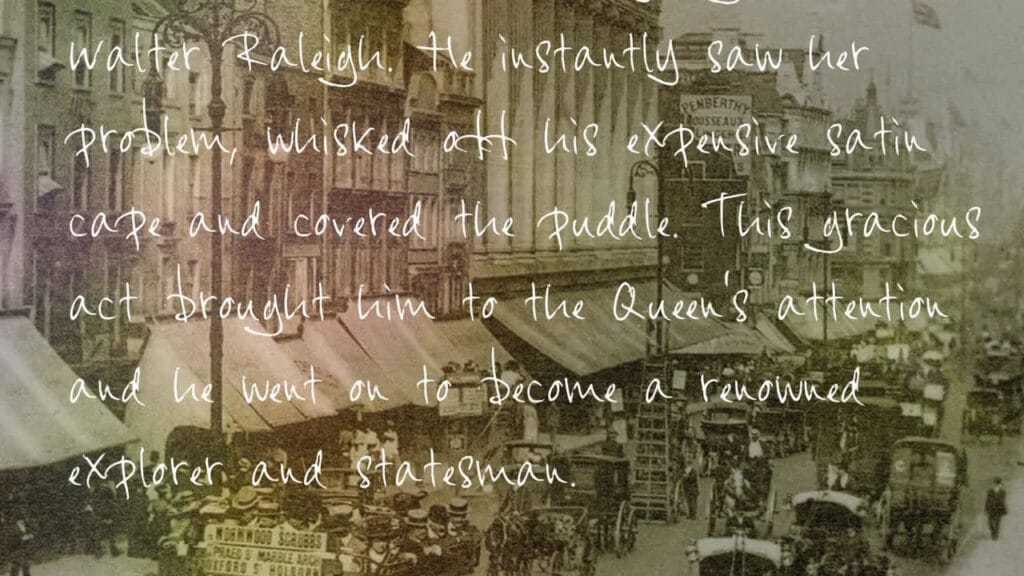 Walter Raleigh. He instantly saw her
problem, whisked off his expensive satin
cape and covered the puddle. This gracious
act brought him to the Queen's attention
and he went on to become a renowned
explorer and statesman.
PENBERTHY
WORMWOOD SCRUBBS
PRAED ST MARBLE ARCH
OXFORD ST HOLBORN